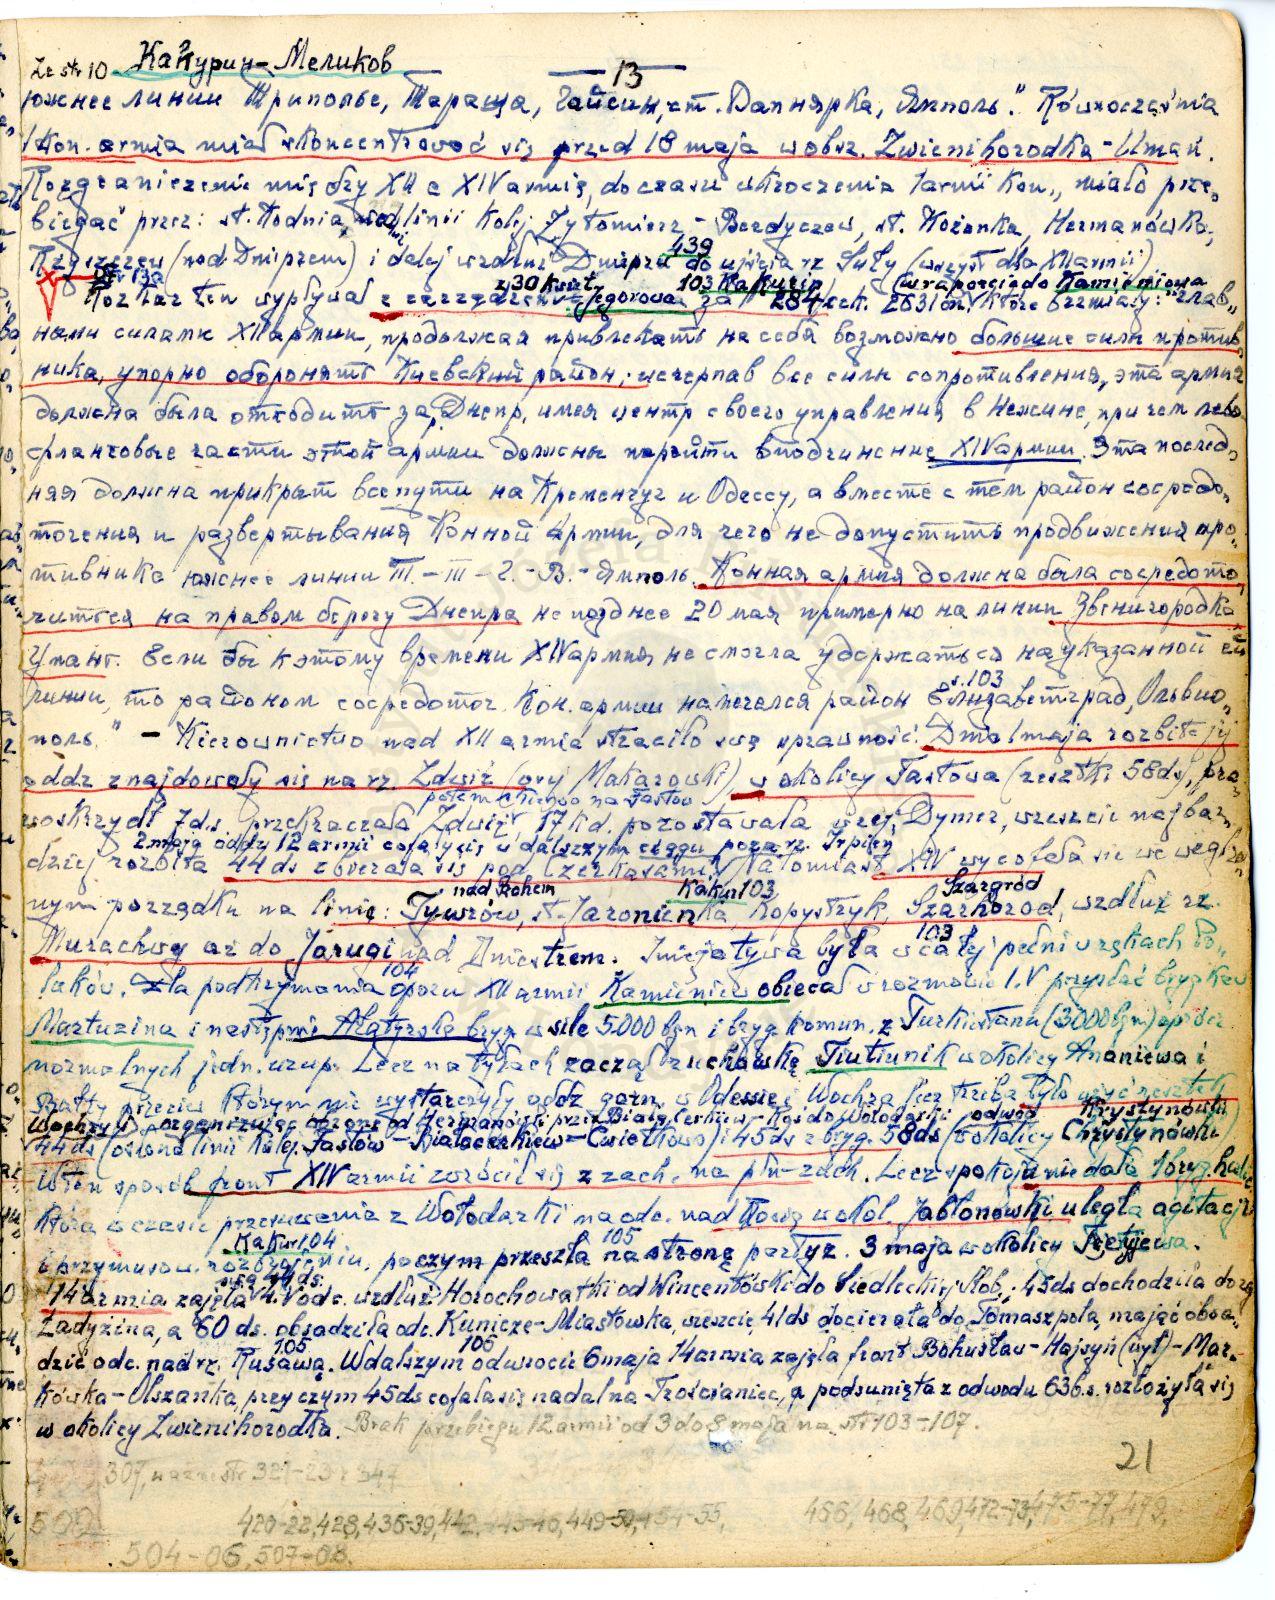 Ze str 10 Какурин-Меликов
13
южнее линии Триполье, Тараща, Гайсин, ст. Вапнярка, Ямполь." Równocześnie
1 Kon. armia miała skoncentrować się przed 18 maja w obsz. Zwienihorodka-Umań.
Rozgraniczenie między XII a XIV armią, do czasu wkroczenia 1 armii Kon., miało prze-
biegać przez: st. Kodnia, linii Kolej. Żytomierz - Berdyczew, st. Kożanka, Hermanówka,
Rzyszczew (nad Dnieprem) i dalej wzdłuż Dniepru do ujścia rz Suły (wszyst. dla XII armii)
439
str 13a
z 30 kwiet. 103 Kakurin (w raporcie do Kamieniewa
Rozkaz ten wypływał z zarządzenia Jegorowa za 284/sek. 2631/op, które brzmiały: "глав-
ными силами XII армии, продолжая привлекать на себя возможно большие силы против-
ника, упорно оборонять Киевский район; исчерпав все силы сопротивления, эта армия
должна была отходить за Днепр, имея центр своего управления в Нежине, причем лево-
фланговые части этой армии должны перейти в подчинение XIV армии. Эта послед-
няя должна прикрыть все пути на Кременчуг и Одессу, а вместе с тем район сосредо-
точения и развертывания Конной армии, для чего не допустить продвижения про-
тивника южнее линии Т.-Т-Г.-В.- Ямполь. Конная армия должна была сосредото-
читься на правом берегу Днепра не позднее 20 мая примерно на линии Звенигородка
Умань. Если бы к этому времени XIV армия не смогла удержаться на указанной ей
линии, то районом сосредоточ. Кон. армии намечался район Елизаветград, Ольвио-
s. 103
поль." - Kierownictwo nad XII armią straciło swą sprawność. Dnia 1 maja rozbite jej
oddz znajdowały się na rz. Zdwiż (rej Makarowki), w okolicy Fastowa (resztki 58 ds), pra-
potem kierowo na Fastów
woskrzydł. 7 ds. przekraczała Zdwiż, 17 kd. pozostawała w rej. Dymer, wreszcie najbar-
2 maja oddz 12 armii cofały się w dalszym ciągu poza rz. Irpień
dziej rozbita 44 ds zbierała się pod Czerkasami. Natomiast XIV wycofała się we względ-
nad Bohem Kakur 103 Szargród
nym porządku na linię: Tywrów, st. Jaronienka, Kopystryk, Szarhorod, wzdłuż rz.
Murachwy aż do Jarugi nad Dniestrem. Inicjatywa była w całej pełni w rękach Po-
103
104
laków. Dla podtrzymania oporu XII armii Kamieniew obiecał w rozmowie 1.V przysłać bryg kaw
Martuzina i następnie Ałatyrską bryg w sile 5000 bgn i bryg komun. z Turkiestanu (3000 bgn) oprócz
normalnych jedn. uzup. Lecz na tyłach zaczął ruchawkę Tiutiunik w okolicy Ananiewa i
Bałty przeciw którym nie wystarczyły oddz garn. w Odessie i Wochra, lecz trzeba było użyć resztek
Wochry), organizując obronę od Hermanówki przez Białą Cerkiew-Koś do Wołodarki odwód Krystynówki
44 ds (osłona linii Kolej. Fastów-Białacerkiew-Cwietkowo) i 45 ds z bryg. 58 ds (w okolicy Chrystynówki
W ten sposób front XIV armii zwrócił się z zach. na płn-zach. Lecz spokoju nie dała 1 bryg. halic
która w czasie przesuwania z Wołodarki na odc. nad Rosią w okol. Jabłonowki uległa agitacji
Kakur 104 105
i przymusow. rozbrojeniu, poczym przeszła na stronę partyz. 3 maja w okolicy Tetijewa.
14 armia zajęła 4.V odc. wzdłuż Horochowatki od Wincentówki do Siedleckiej Słob.; 45 ds dochodziła do rz
Żadyzina, a 60 ds. obsadziła odc. Kunicze-Miastówka, wreszcie 41 ds docierała do Tomaszpola, mając obsa-
105 106
dzić odc. nad rz. Rusawą. W dalszym odwrocie 6 maja 14 armia zajęła front Bohusław-Hajsyń (wył)-Mar-
kówka-Olszanka, przy czym 45 ds cofała się nadal na Trościaniec, a podsunięta z odwodu 63 b.s. rozłożyła się
w okolicy Zwienihorodka. Brak przebiegu 12 armii od 3 do 8 maja na str 103-107.
21
307, ważne str 321-23 i 347
500 420-22, 428, 436-39, 442, 445-46, 449-50, 454-55, 466, 468, 469, 472-73, 475-77, 479,
504-06, 507-08.